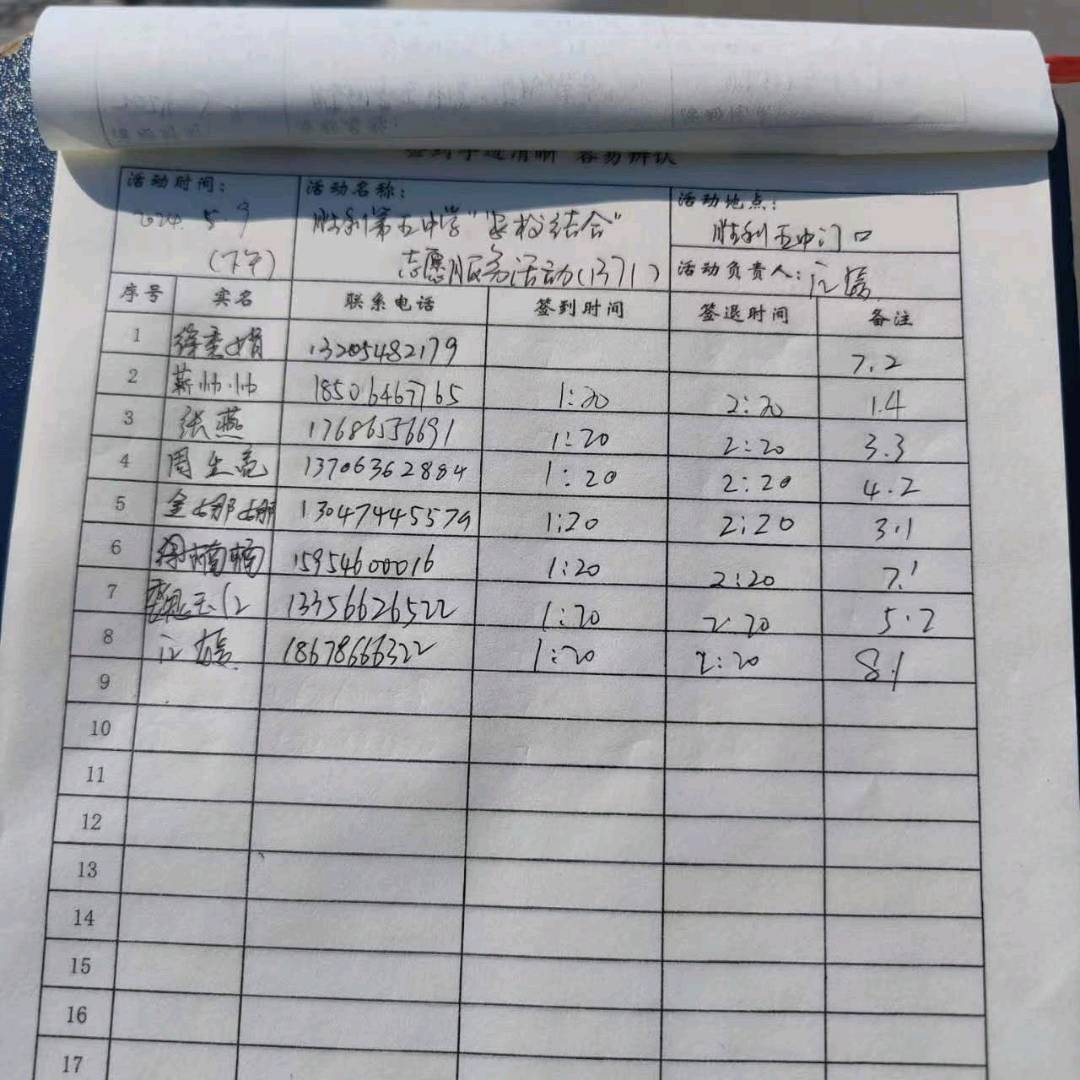 签到字迹清晰 容易辨认
活动时间: 2024.5.9 (下午)
活动名称: 胜利第五中学"家校结合" 志愿服务活动(1371)
活动地点: 胜利五中门口
活动负责人: 江媛
序号 实名 联系电话 签到时间 签退时间 备注
1 徐重娟 13205482179 7.2
2 靳帅帅 18506467765 1:20 2:20 1.4
3 张燕 17686536691 1:20 2:20 3.3
4 周生亮 13706362884 1:20 2:20 4.2
5 金娜娜 13047445579 1:20 2:20 3.1
6 楠楠 15954600016 1:20 2:20 7.1
7 13356626522 1:20 2:20 5.2
8 江媛 18678666322 1:20 2:20 8.1
9
10
11
12
13
14
15
16
17